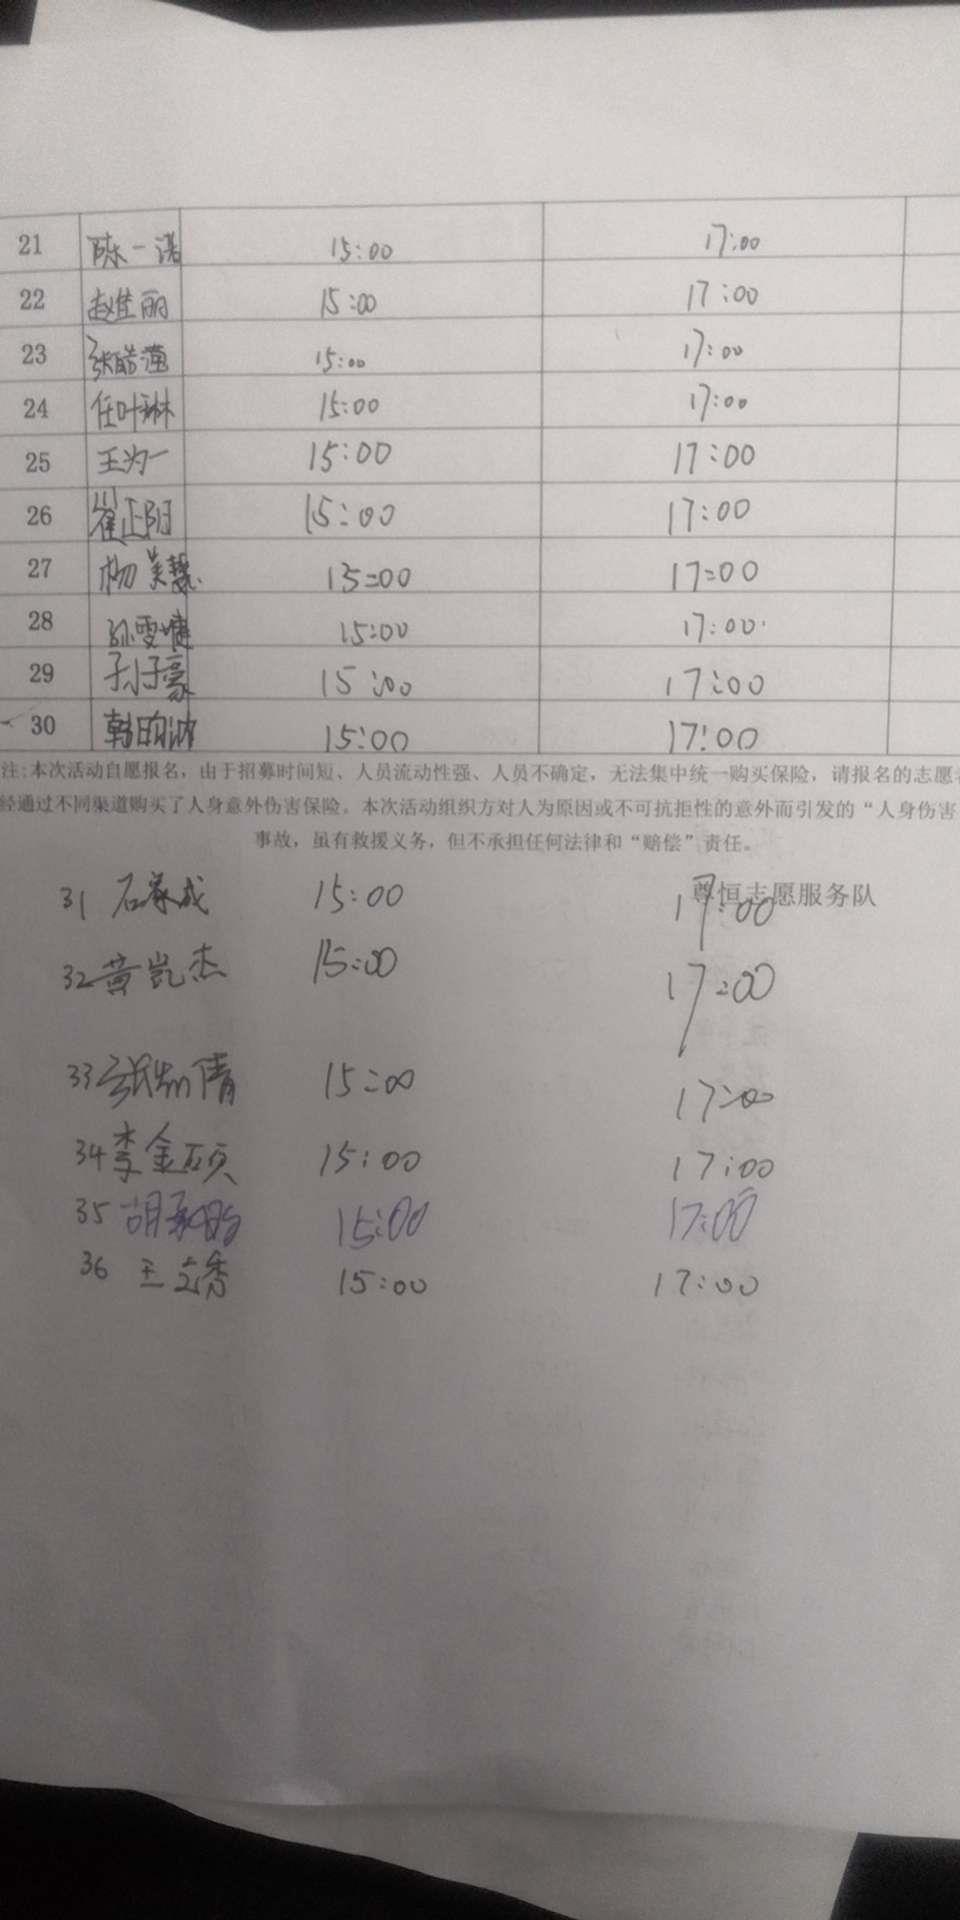 21 陈一诺 15:00 17:00
22 赵佳丽 15:00 17:00
23 张皓滢 15:00 17:00
24 任叶琳 15:00 17:00
25 王为一 15:00 17:00
26 崔正阳 15:00 17:00
27 杨美慧 15:00 17:00
28 孙雯婕 15:00 17:00
29 孙子豪 15:00 17:00
30 韩昀 15:00 17:00
注:本次活动自愿报名，由于招募时间短、人员流动性强、人员不确定，无法集中统一购买保险，请报名的志愿
经通过不同渠道购买了人身意外伤害保险。本次活动组织方对人为原因或不可抗拒性的意外而引发的“人身伤害
事故，虽有救援义务，但不承担任何法律和“赔偿”责任。
尊恒志愿服务队
31 石家成 15:00 17:00
32 黄凯杰 15:00 17:00
33 张 倩 15:00 17:00
34 李金硕 15:00 17:00
35 胡 15:00 17:00
36 王 秀 15:00 17:00